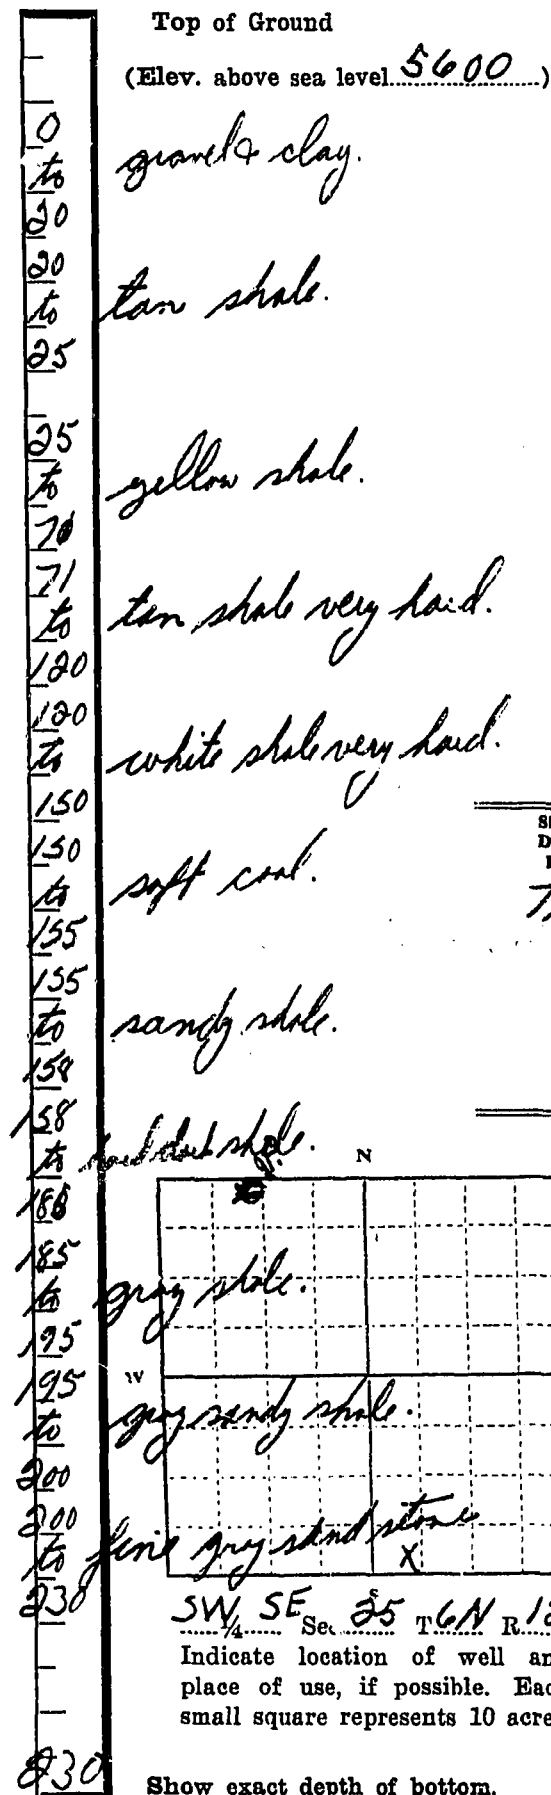 Top of Ground
(Elev. above sea level 5600)
0
to gravel & clay.
20
20
to tan shale.
25
25
to yellow shale.
71
to tan shale very hard.
120
120
to white shale very hard.
150
150
to soft coal.
155
155
to sandy shale.
158
158
to hard dark shale.
N
185
to gray shale.
195
195 W
to gray sandy shale.
200
200
to fine gray sand stone
X
230
S
SW ¼ SE Sec. 25 T 6N R
Indicate location of well an
place of use, if possible. Eac
small square represents 10 acre
230
Show exact depth of bottom.